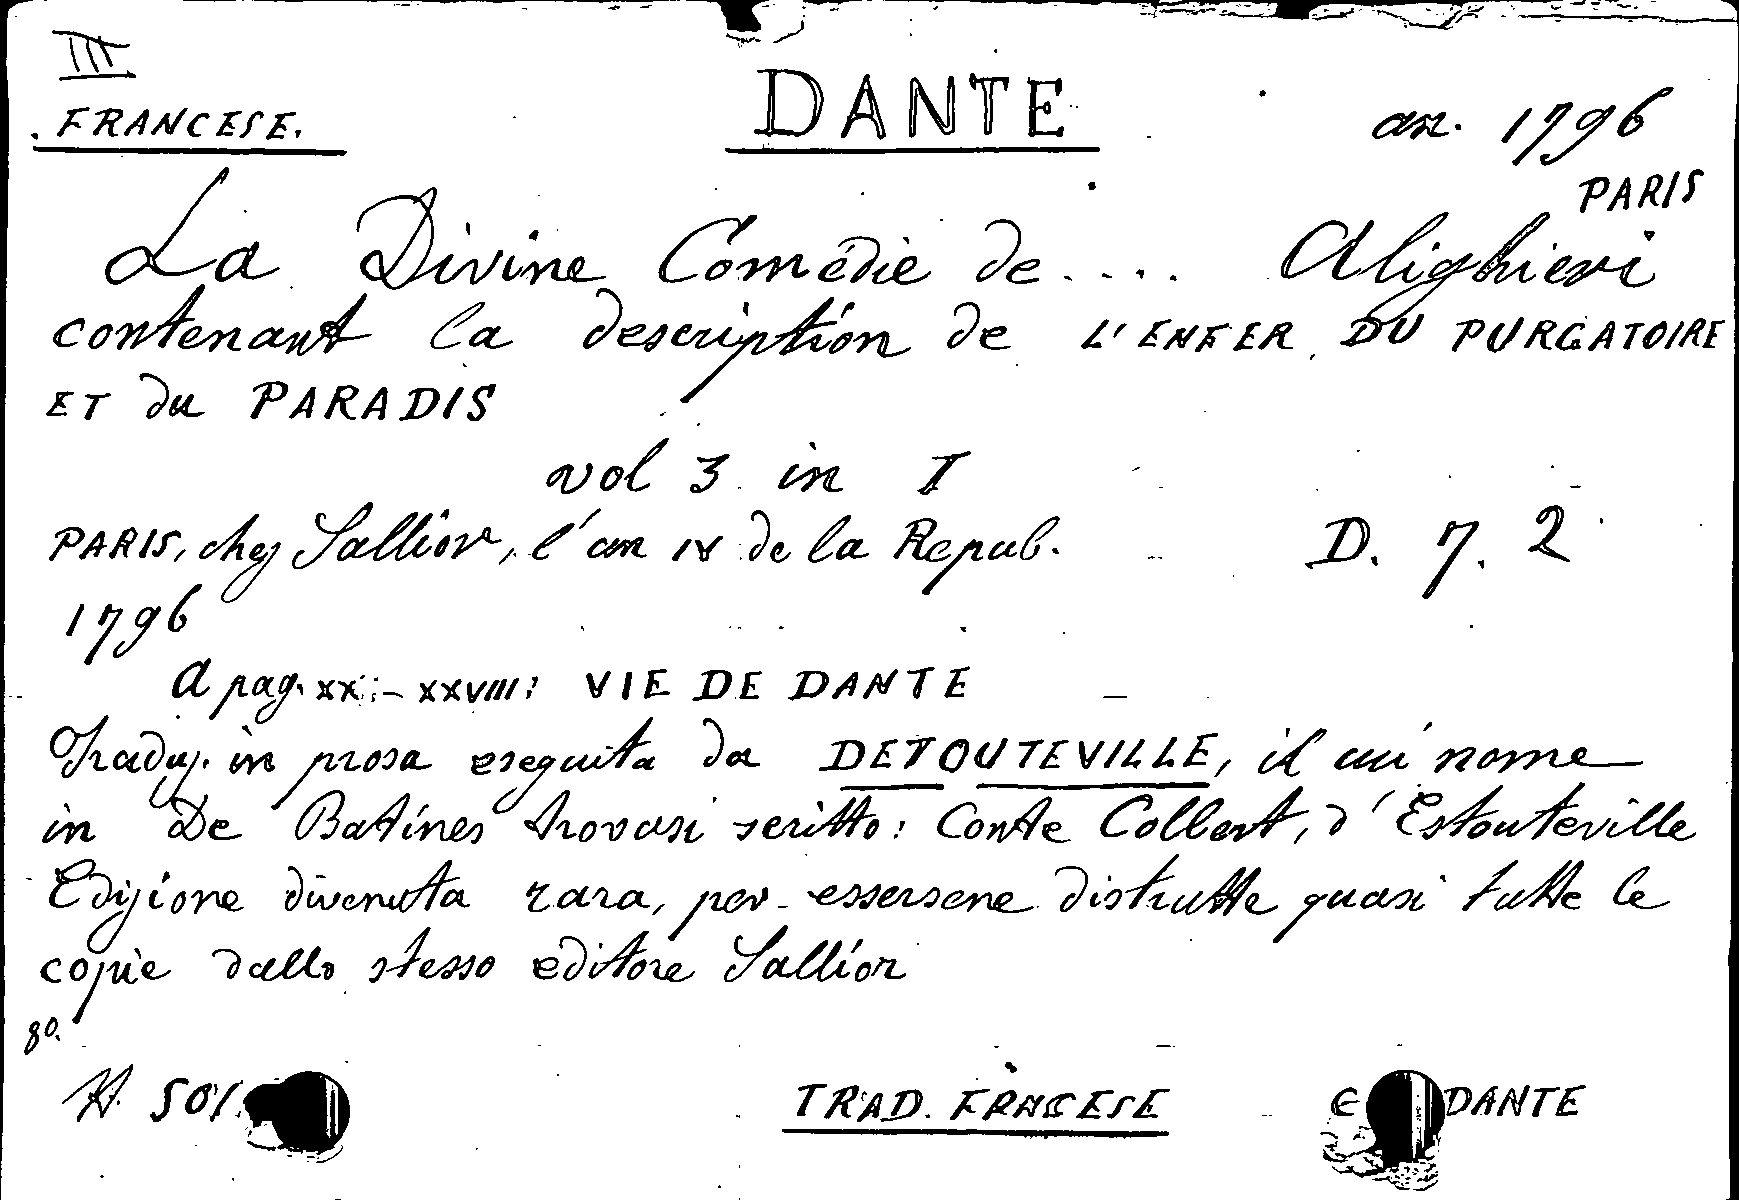 III
FRANCESE.
DANTE
an. 1796
PARIS
La Divine Comédie de.... Alighieri
contenant la description de L'ENFER, DU PURGATOIRE
ET du PARADIS
vol 3 in I
PARIS, chez Sallior, l'an IV de la Repub.
D. 7. 2
1796
A pag. XX - XXVIII: VIE DE DANTE
Traduz. in prosa eseguita da DETOUTEVILLE, il cui nome
in De Batines trovasi scritto: Conte Colbert, d'Estouteville
Edizione divenuta rara, per essersene distrutte quasi tutte le
copie dallo stesso editore Sallior
80.
501
TRAD. FRANCESE
DANTE